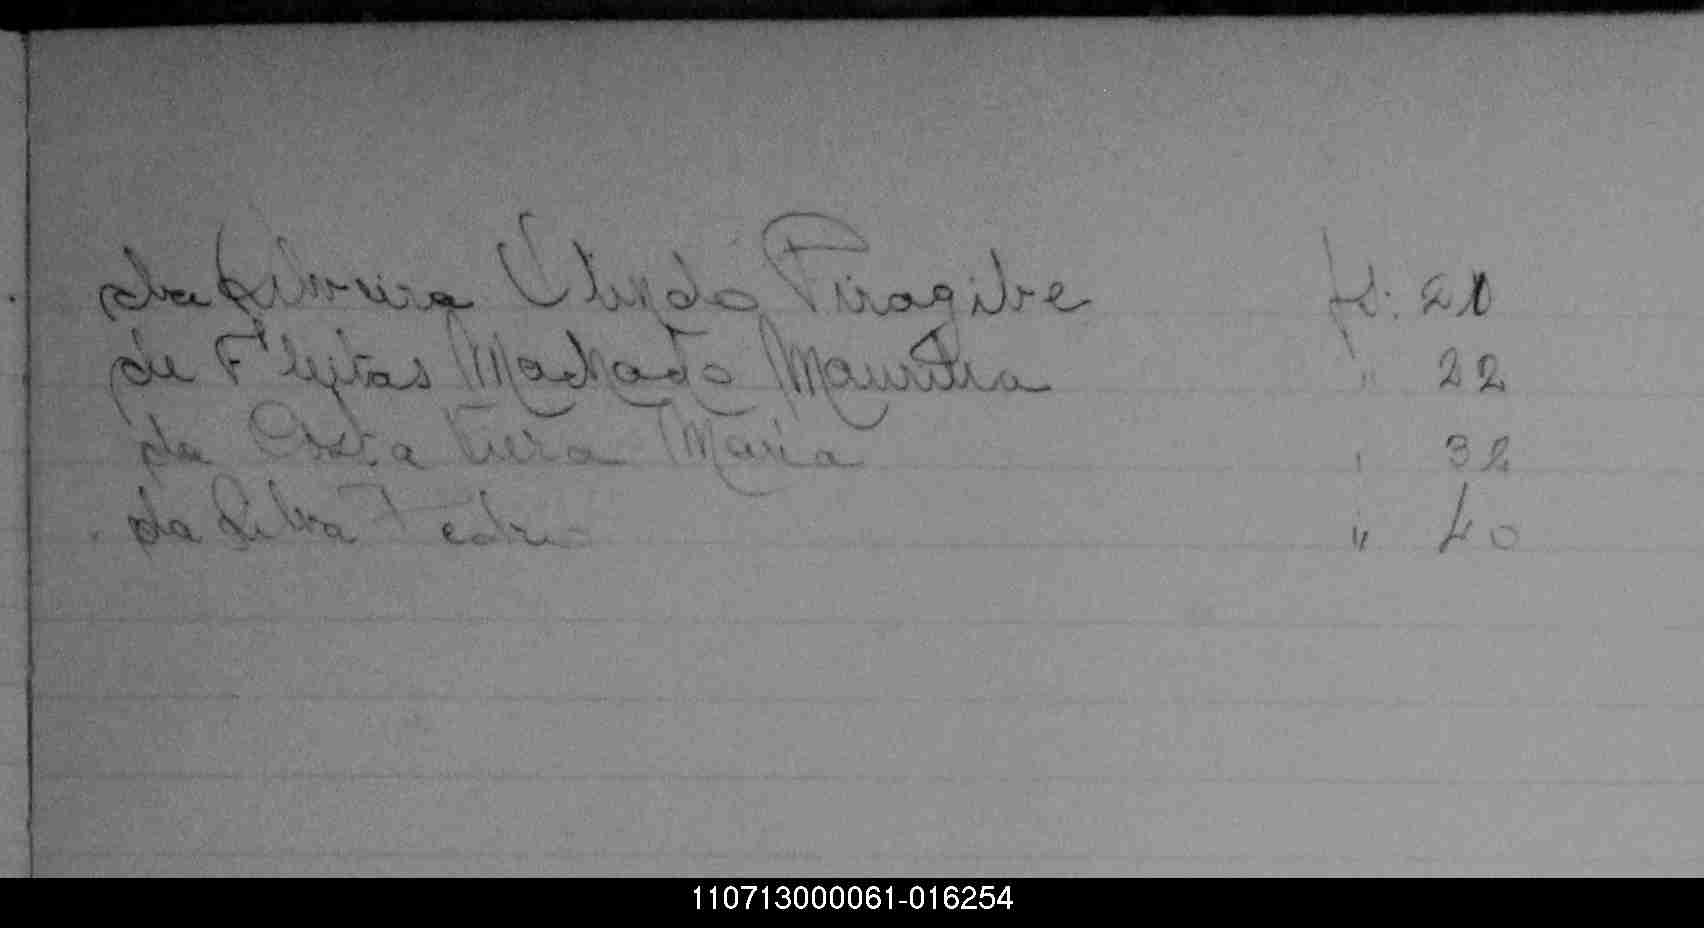 da Silveira Olindo Piragibe fs: 21
de Fleitas Machado Mauritia " 22
da Costa Maria " 32
da Silva Pedro " 40
110713000061-016254